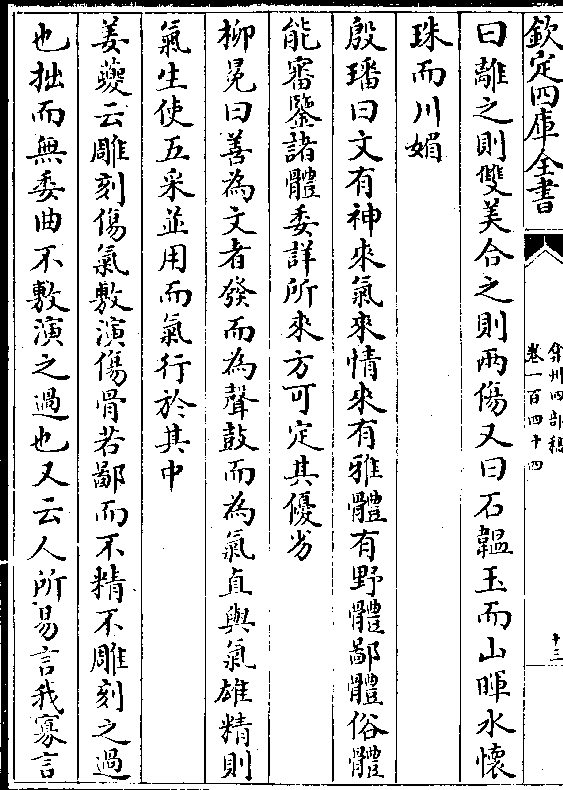 欽定四庫全書
弇州四部稿
卷一百四十四
十三
曰離之則雙美合之則兩傷又曰石韞玉而山暉水懷
珠而川媚
殷璠曰文有神來氣來情來有雅體有野體鄙體俗體
能審鑒諸體委詳所來方可定其優劣
柳冕曰善為文者發而為聲鼓而為氣直與氣雄精則
氣生使五采並用而氣行於其中
姜夔云雕刻傷氣敷演傷骨若鄙而不精不雕刻之過
也拙而無委曲不敷演之過也又云人所易言我寡言